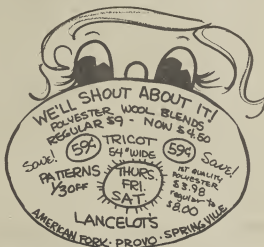 WE'LL SHOUT ABOUT IT!
POLYESTER WOOL BLENDS
REGULAR $9 - NOW $4.80
Save! 59¢ TRICOT 59¢ Save!
54" WIDE
PATTERNS
1/3 OFF
THURS.
FRI.
SAT.
1ST QUALITY
POLYESTER
$3.98
regular to
$8.00
LANCELOT'S
AMERICAN FORK · PROVO · SPRINGVILLE